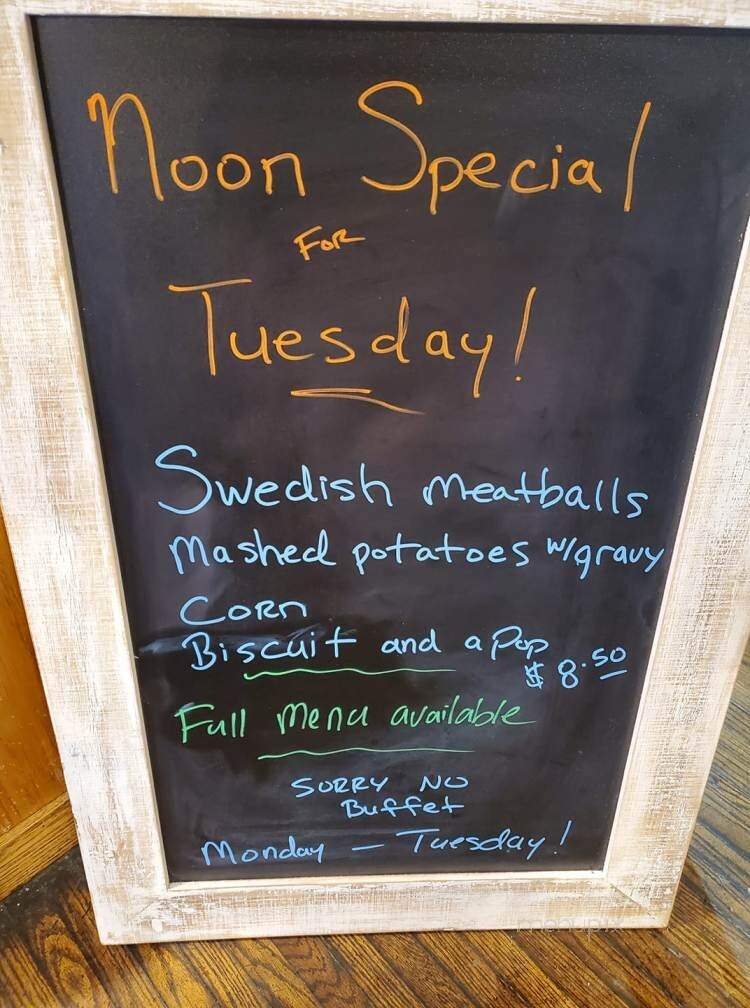 Noon Special
For
Tuesday!
Swedish Meatballs
Mashed potatoes w/gravy
Corn
Biscuit and a Pop
$8.50
Full Menu available
Sorry No
Buffet
Monday - Tuesday!